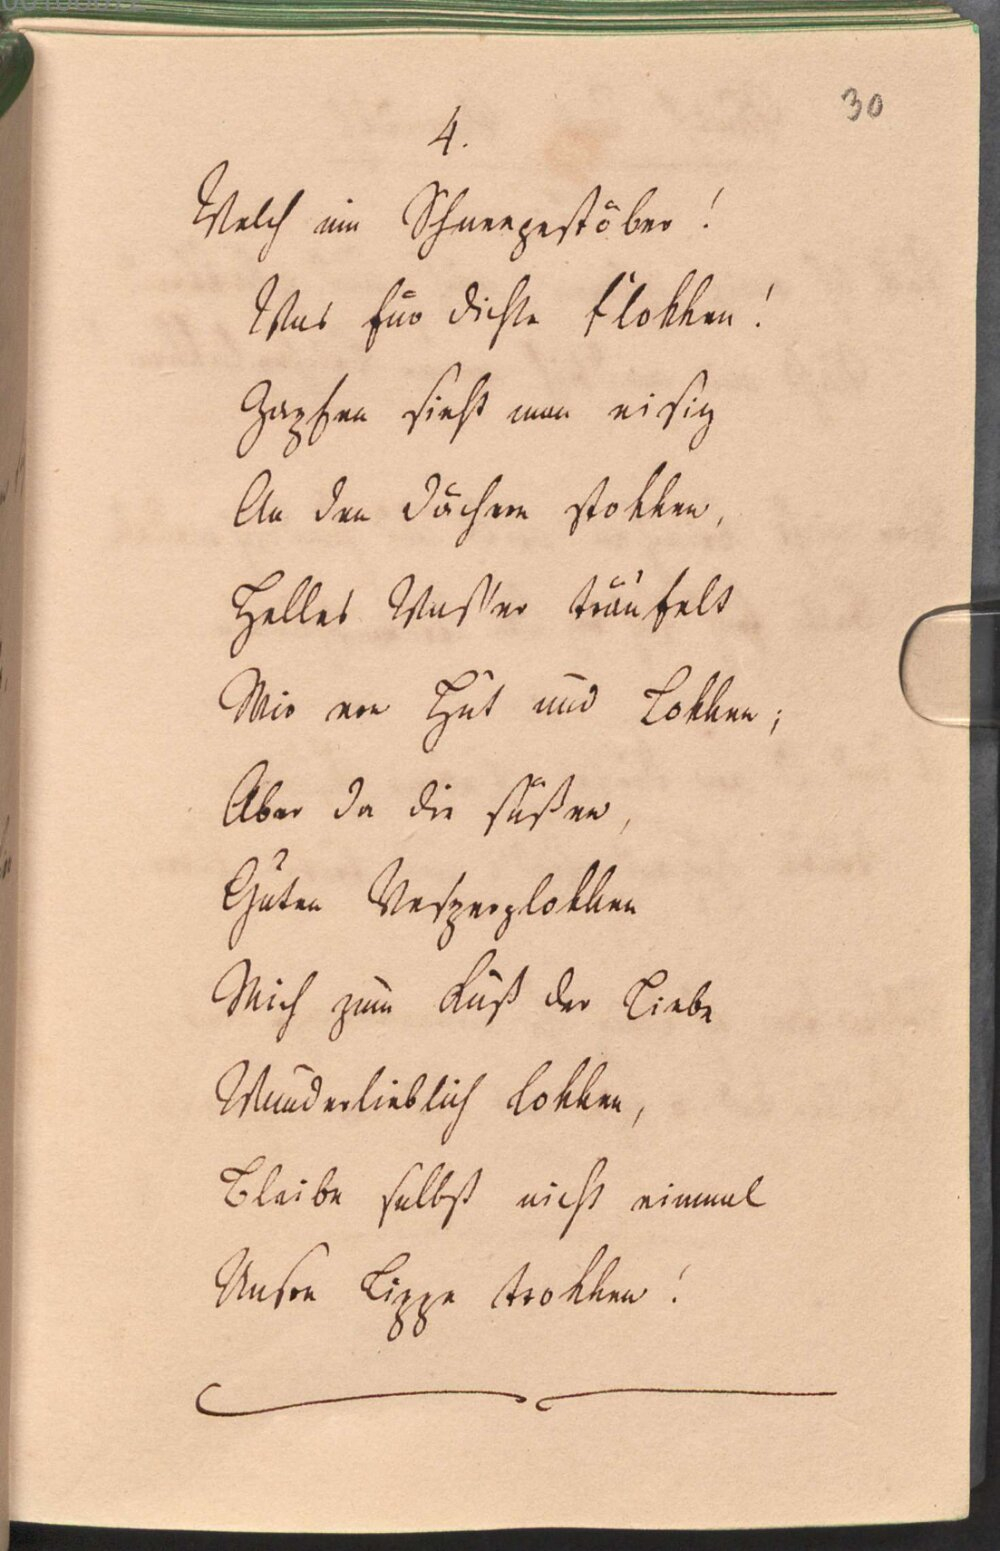 30
4.
Welch ein Schneegestöber!
Was für dichte Flokken!
Zapfen sieht man eisig
An den Dächern stokken,
Helles Wasser träufelt
Mir von Hut und Lokken;
Aber da die süßen,
Guten Vesperglokken
Mich zum Kuß der Liebe
Wunderlieblich lokken,
Bleibe selbst nicht einmal
Unsre Lippe trokken!